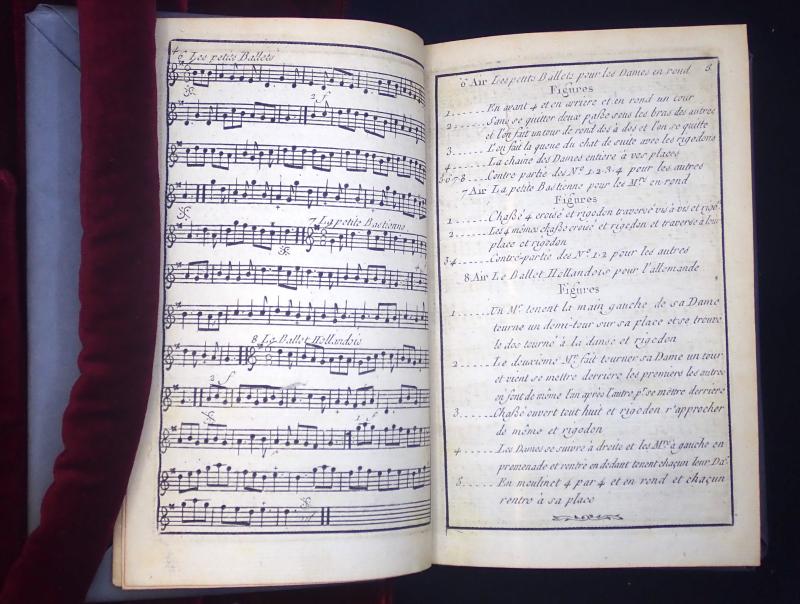 4
6 Les petits Ballets
2 f
7 La petite Bastienne
8 Le Ballet Hollandois
2 f
5
6 Air Les petits Ballets pour les Dames en rond
Figures
1 En avant 4 et en arriere et en rond un tour
2 Sans se quitter deux passe sous les bras des autres
et l'on fait un tour de rond dos à dos et l'on se quitte
3 L'on fait la queue du chat de suite avec les rigodons
4 La chaine des Dames entiere à vos places
5 6 7 8 Contre partie des Nº 1 2 3 4 pour les autres
7 Air La petite Bastienne pour les Mrs en rond
Figures
1 Chassé 4 croisé et rigodon traversé vis à vis et rigo
2 Les 4 mêmes chassé croisé et rigodon et traverse à leur
place et rigodon
3 4 Contre-partie des Nº 1 2 pour les autres
8 Air Le Ballet Hollandois pour l'allemande
Figures
1 Un Mr tenent la main gauche de sa Dame
tourne un demi-tour sur sa place et se trouve
le dos tourné à la danse et rigodon
2 Le deuxième Mr fait tourner sa Dame un tour
et vient se mettre derrière les premiers les autres
en font de même l'un après l'autre pr se mettre derriere
3 Chassé ouvert tout huit et rigodon r'approcher
de même et rigodon
4 Les Dames se suivre à droite et les Mrs à gauche en
promenade et rentre en dedant tenent chaçun leur Da.
5 En moulinet 4 par 4 et en rond et chaçun
rentre à sa place